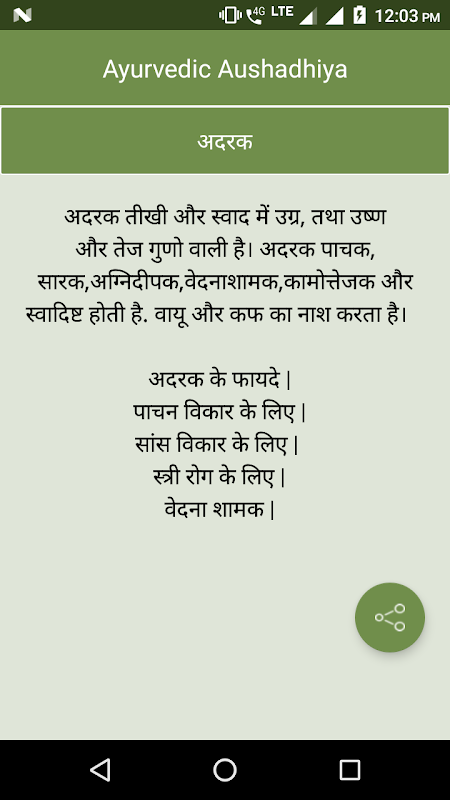 4G LTE 12:03 PM
Ayurvedic Aushadhiya
अदरक
अदरक तीखी और स्वाद में उग्र, तथा उष्ण
और तेज गुणो वाली है। अदरक पाचक,
सारक,अग्निदीपक,वेदनाशामक,कामोत्तेजक और
स्वादिष्ट होती है. वायू और कफ का नाश करता है।
अदरक के फायदे |
पाचन विकार के लिए |
सांस विकार के लिए |
स्त्री रोग के लिए |
वेदना शामक |